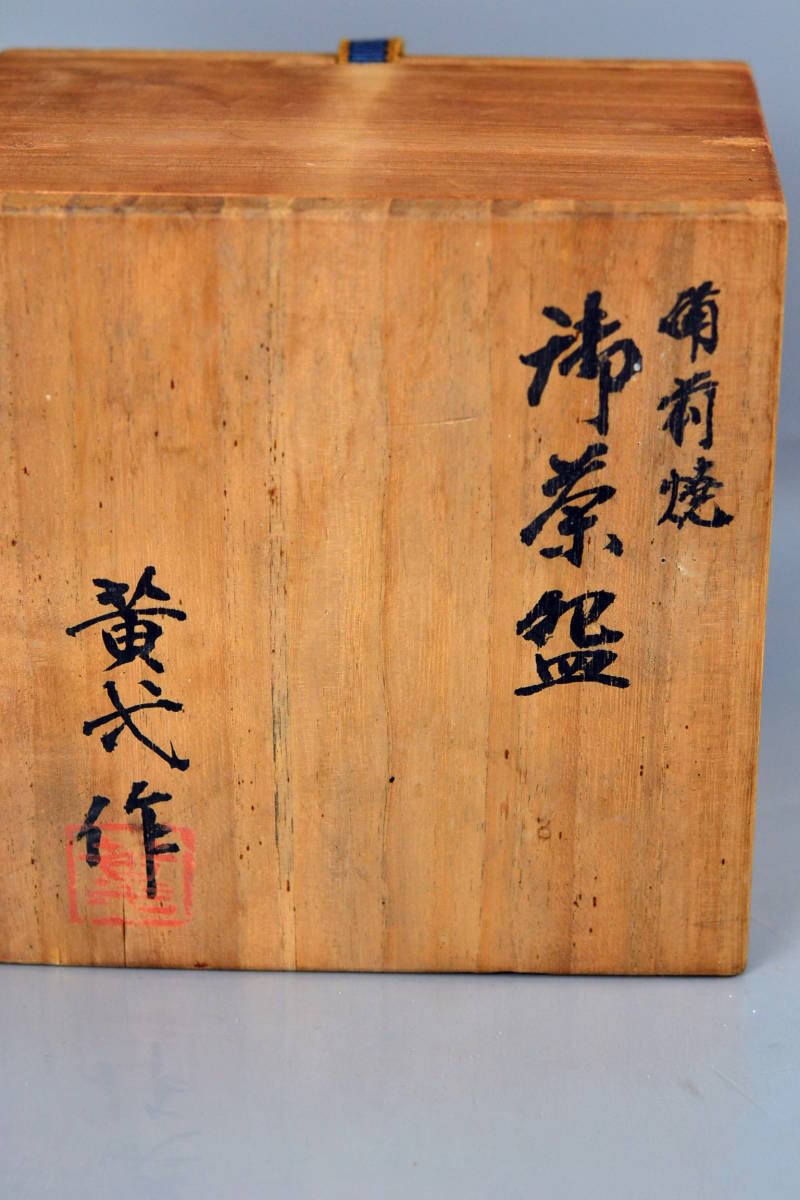 備前焼
御茶盌
黄弋作